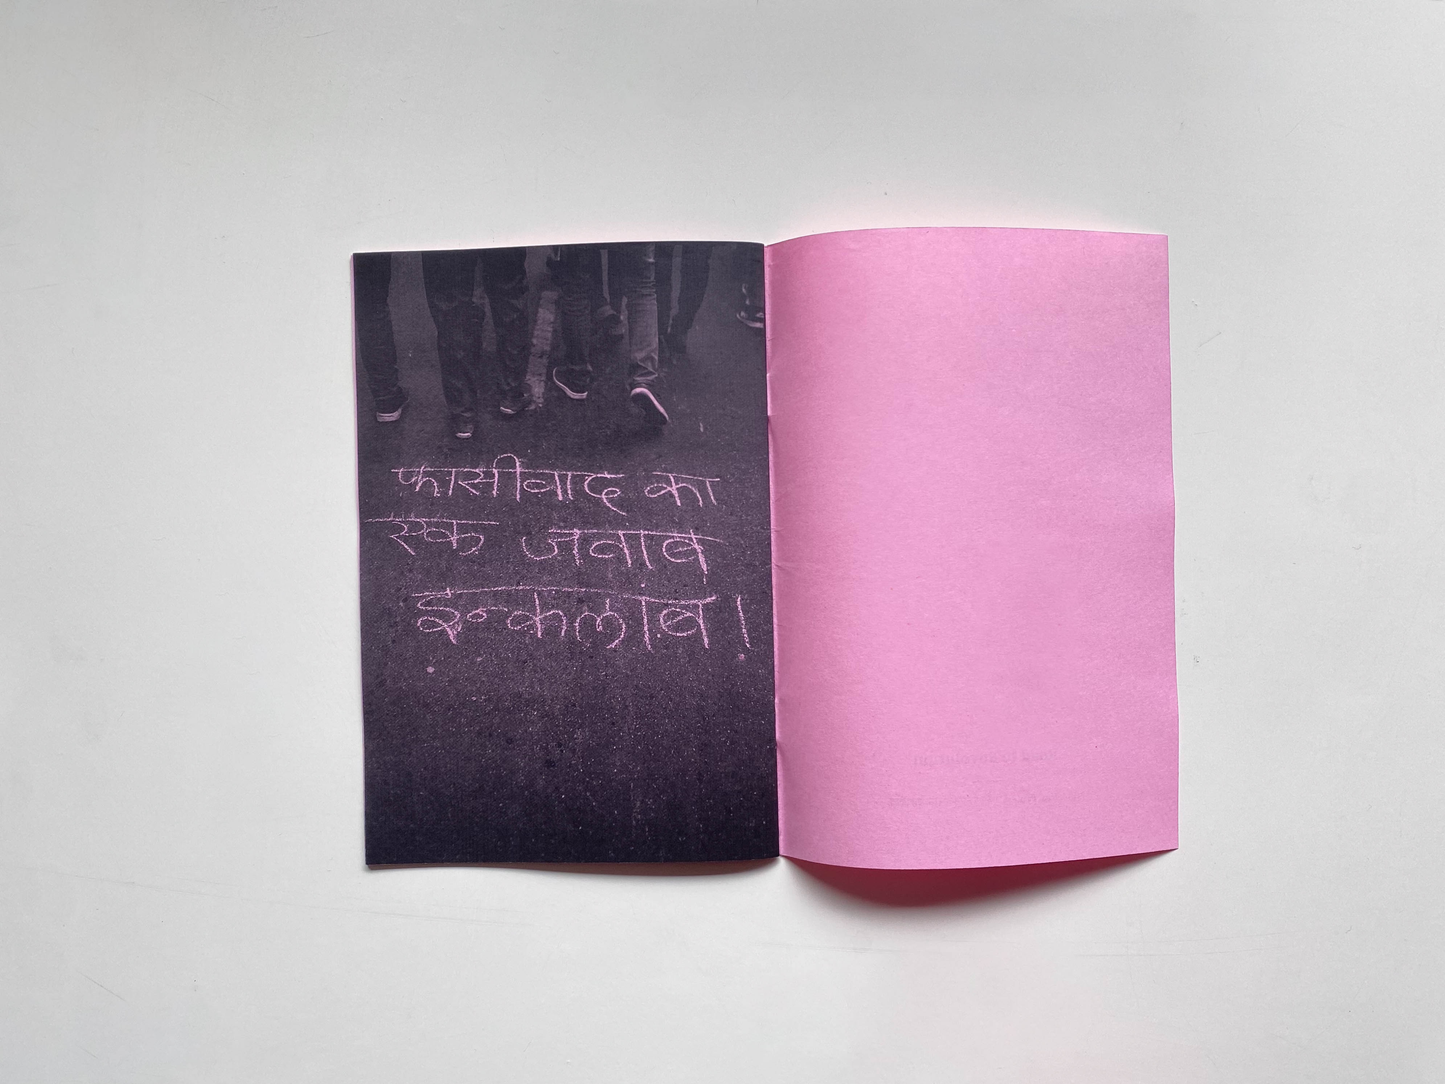 फासीवाद का
एक जवाब
इन्कलाब!